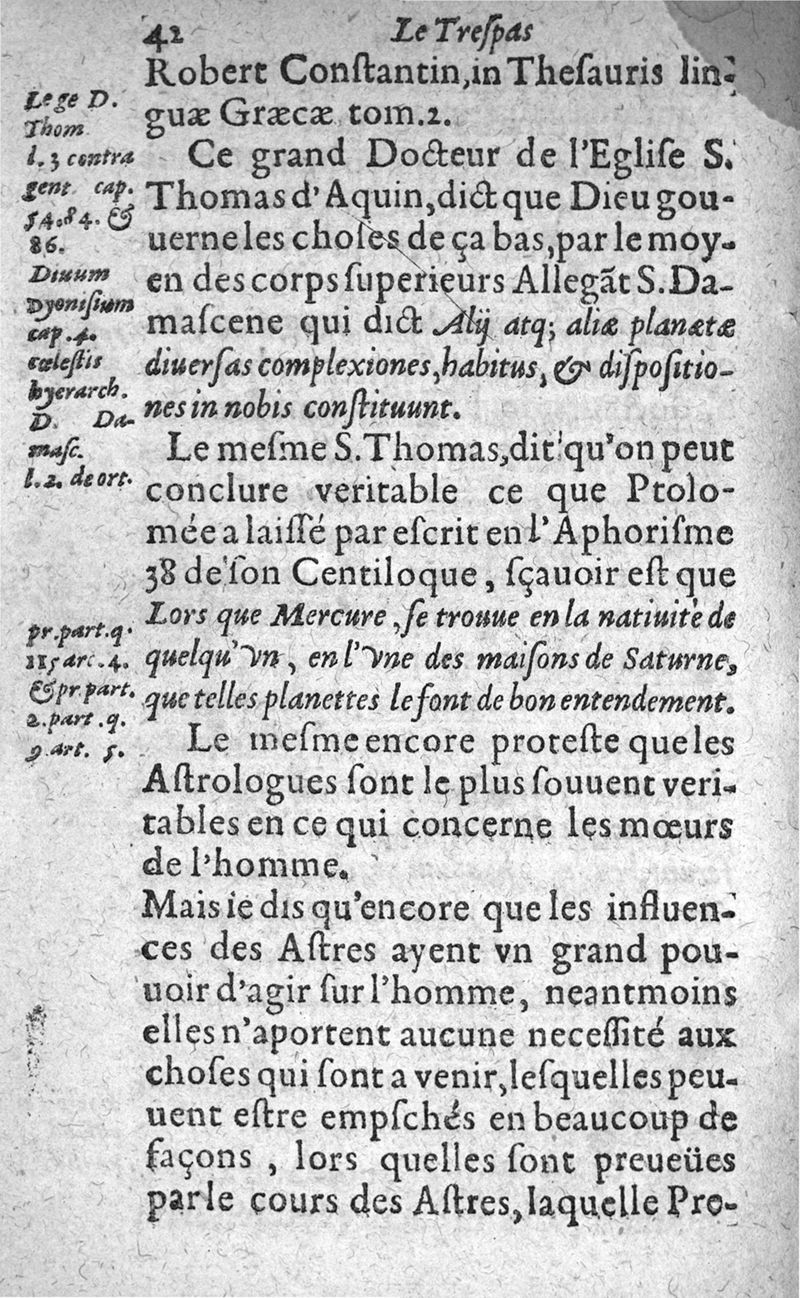 42 Le Treſpas
Robert Conſtantin,in Theſauris lin-
guæ Græcæ tom.2.
Lege D.
Thom
l.3 contra
gent cap.
54.84. &
86.
Diuum
Dyonisium
cap.4.
cœleſtis
hyerarch.
D. Da-
maſc.
l.2. de ort.
Ce grand Docteur de l'Egliſe S.
Thomas d'Aquin,dict que Dieu gou-
uerne les choſes de ça bas,par le moy-
en des corps ſuperieurs Allegãt S.Da-
maſcene qui dict Alij atq; aliæ planætæ
diuerſas complexiones,habitus, & diſpoſitio-
nes in nobis conſtituunt.
Le meſme S.Thomas,dit qu'on peut
conclure veritable ce que Ptolo-
mée a laiſſé par eſcrit en l'Aphoriſme
38 de ſon Centiloque, ſçauoir eſt que
Lors que Mercure ,ſe trouue en la natiuité de
quelqu'vn, en l'vne des maiſons de Saturne,
que telles planettes le font de bon entendement.
pr.part.q.
115 arc.4.
&pr.part.
2.part.q.
9.art. 5.
Le meſme encore proteſte que les
Aſtrologues ſont le plus ſouuent veri-
tables en ce qui concerne les mœurs
de l'homme.
Mais ie dis qu'encore que les influen-
ces des Aſtres ayent vn grand pou-
uoir d'agir ſur l'homme, neantmoins
elles n'aportent aucune neceſſité aux
choſes qui ſont a venir,leſquelles peu-
uent eſtre empſchés en beaucoup de
façons , lors quelles ſont preueües
par le cours des Aſtres,laquelle Pro-